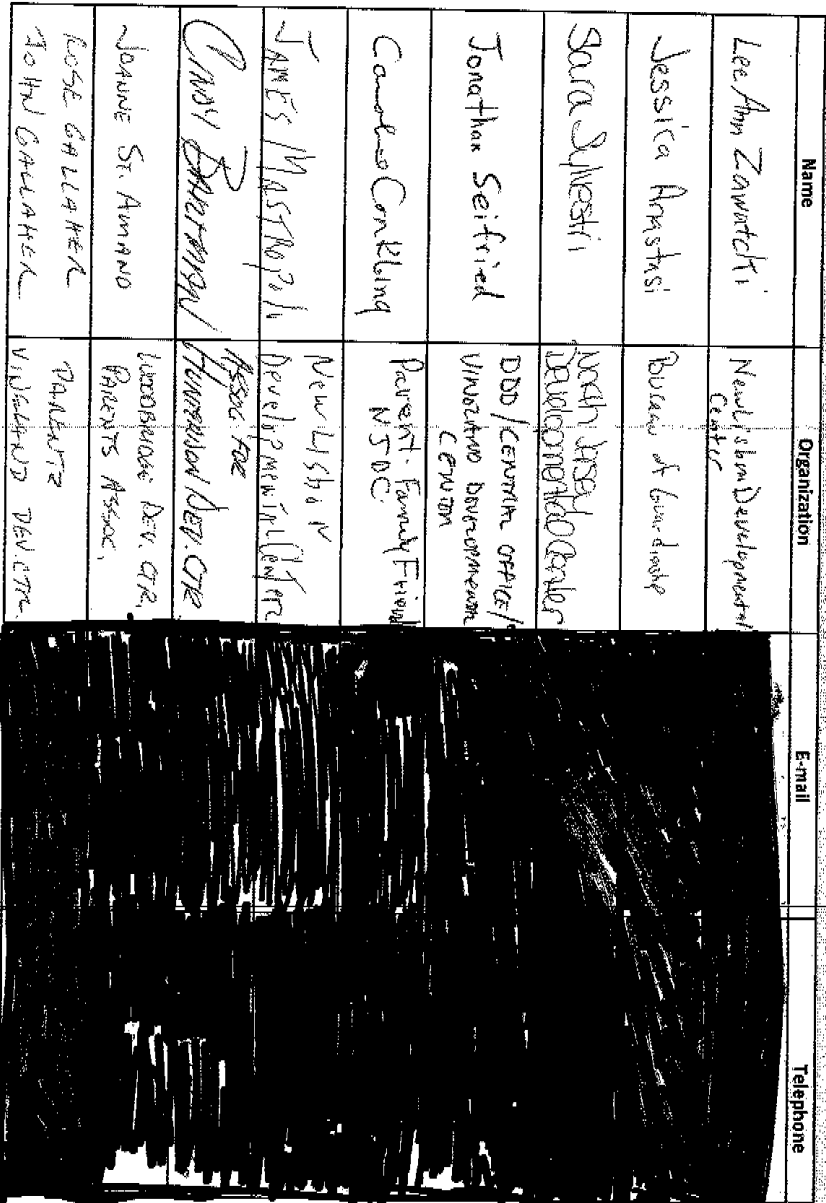 Name Organization E-mail Telephone
Lee Ann Zawatcki New Lisbon Developmental
Center
Jessica Anastasi Bureau of Guardianship
Sara Sylvestri North Jersey
Developmental Center
Jonathan Seifried DDD/CENTRAL OFFICE/
VINELAND DEVELOPMENTAL
CENTER
Conkling Parent-Family Friend
NJDC
JAMES MASTROPOLI New Lisbon
Development Center
CINDY BARTMAN ASSOC FOR
HUNTERDON DEV. CTR
JOANNE ST. AMAND WOODBRIDGE DEV. CTR.
PARENTS ASSOC.
ROSE GALLAHER PARENTS
JOHN GALLAHER VINELAND DEV. CTR.